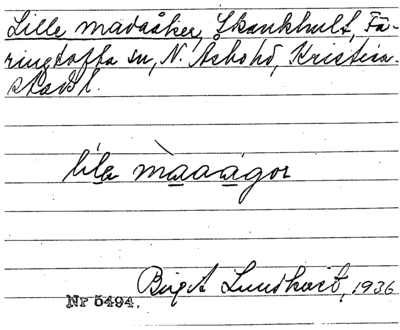 Lille madaåker, Skankhult, Fä-
ringtofta sn, N. Åsbohd, Kristian-
stads l.
Birgit Lundkvist, 1936
Nr 5494.